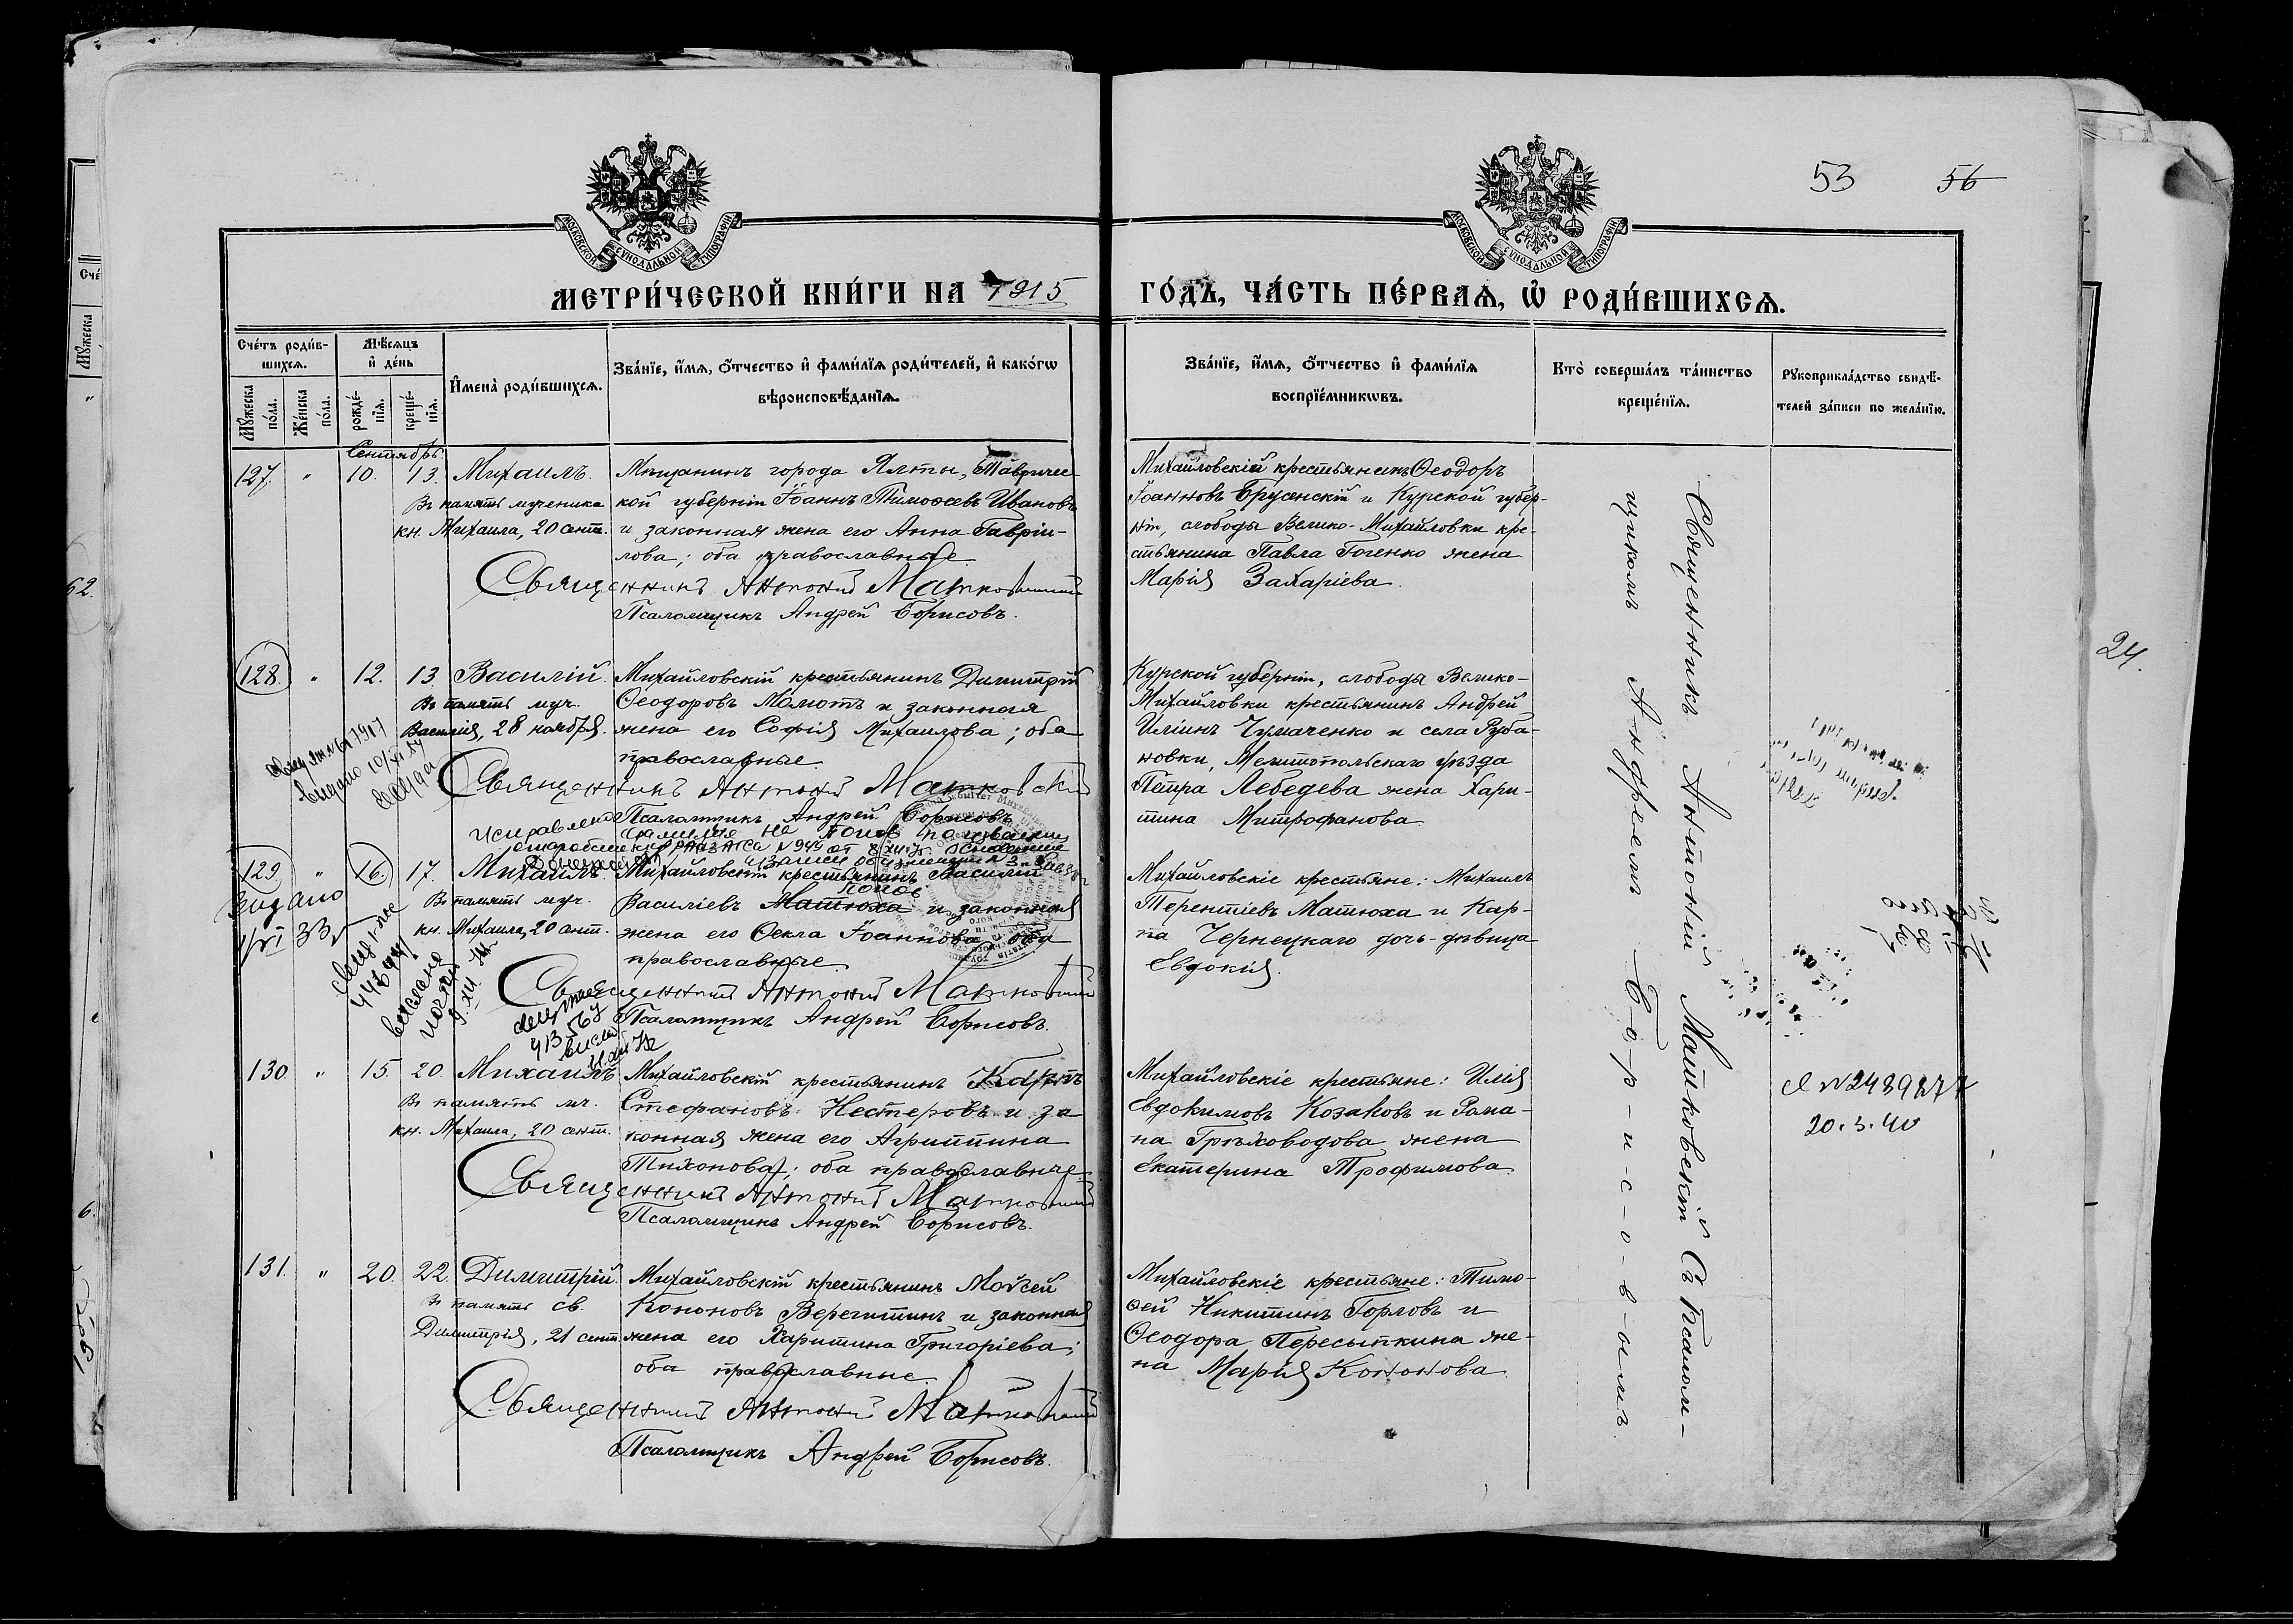 53 56
МОСКОВСКОЙ СѴНОДАЛЬНОЙ ТИПОГРАФІИ
МОСКОВСКОЙ СѴНОДАЛЬНОЙ ТИПОГРАФІИ
МЕТРИ́ЧЕСКОЙ КНИ́ГИ НА 1915
ГО́ДЪ, ЧА́СТЬ ПЕ́РВАѦ, Ѡ҆ РОДИ́ВШИХСѦ.
Сче́тъ роди́в-
шихсѧ.
Мꙋ́жеска по́ла.
Же́нска по́ла.
Мѣ́сѧцъ
и҆ де́нь
рожде́-
нїѧ.
креще́-
нїѧ.
И҆мена̀ роди́вшихсѧ.
Зва́нїе, и҆́мѧ, ѻ҆́тчество и҆ фами́лїѧ роди́телей, и҆ како́гѡ
вѣроисповѣ́данїѧ.
Зва́нїе, и҆́мѧ, ѻ҆́тчество и҆ фами́лїѧ
воспрїе́мникѡвъ.
Кто̀ соверша́лъ та́инство
креще́нїѧ.
Рꙋкоприкла́дство свидѣ́-
телей за́писи по жела́нїю.
Сентябрь
127. " 10. 13. Михаилъ.
Въ память мученика
кн. Михаила, 20 сент.
Мѣщанинъ города Ялты, Тавричес-
кой губерніи Іоаннъ Тимоѳеевъ Ивановъ
и законная жена его Анна Гаврiи-
лова; оба православные
Священникъ Антоній Матковскій
Псаломщикъ Андрей Борисовъ.
Михайловскій крестьянинъ Ѳеодоръ
Іоанновъ Брусенскій и Курской губер-
ніи, слободы Велико-Михайловки кре-
стьянина Павла Гоженко жена
Марія Захаріева.
128. " 12. 13 Василій.
Въ память муч.
Василія, 28 ноября.
Михайловскій крестьянинъ Димитрій
Ѳеодоровъ Мамотъ и законная
жена его Софія Михаилова; оба
православные.
Священникъ Антоній Матковскій
Псаломщикъ Андрей Борисовъ
Курской губерніи, слободы Велико-
Михайловки крестьянинъ Андрей
Иліинъ Чумаченко и села Руба-
новки, Мелитопольскаго уѣзда
Петра Лебедева жена Хари-
тина Митрофанова.
Исправлено фамилия на Попов
129. " 16. 17. Михаилъ.
Въ память муч.
кн. Михаила, 20 сент.
Михайловскій крестьянинъ Василій
Попов
Василіевъ Матюха и законная
жена его Ѳекла Іоаннова оба
православные.
Священникъ Антоній Матковскій
Псаломщикъ Андрей Борисовъ.
Михайловскіе крестьяне: Михаилъ
Терентіевъ Матюха и Кар-
па Чернецкаго дочь-дѣвица
Евдокія.
130. " 15. 20. Михаилъ
Въ память мч.
кн. Михаила, 20 сент.
Михайловскій крестьянинъ Карпъ
Стефановъ Нестеровъ и за
конная жена его Агриппина
Тихонова; оба православные
Священникъ Антоній Матковскій
Псаломщикъ Андрей Борисовъ.
Михайловскіе крестьяне: Илія
Евдокимовъ Козаковъ и Рома-
на Грѣховодова жена
Екатерина Трофимова.
20.3.40
131. " 20. 22. Димитрій.
Въ память св.
Димитрія, 21 сент.
Михайловскій крестьянинъ Моѵсей
Кононовъ Верегитинъ и законная
жена его Харитина Григоріева;
оба православные.
Священникъ Антоній Матковскій
Псаломщикъ Андрей Борисовъ.
Михайловскіе крестьяне: Тимо-
ѳей Никитинъ Горловъ и
Ѳеодора Пересыпкина же-
на Марія Кононова.
Священникъ Антоній Матковскій съ псалом-
щикомъ Андреемъ Б-о-р-и-с-о-в-ымъ.
24.